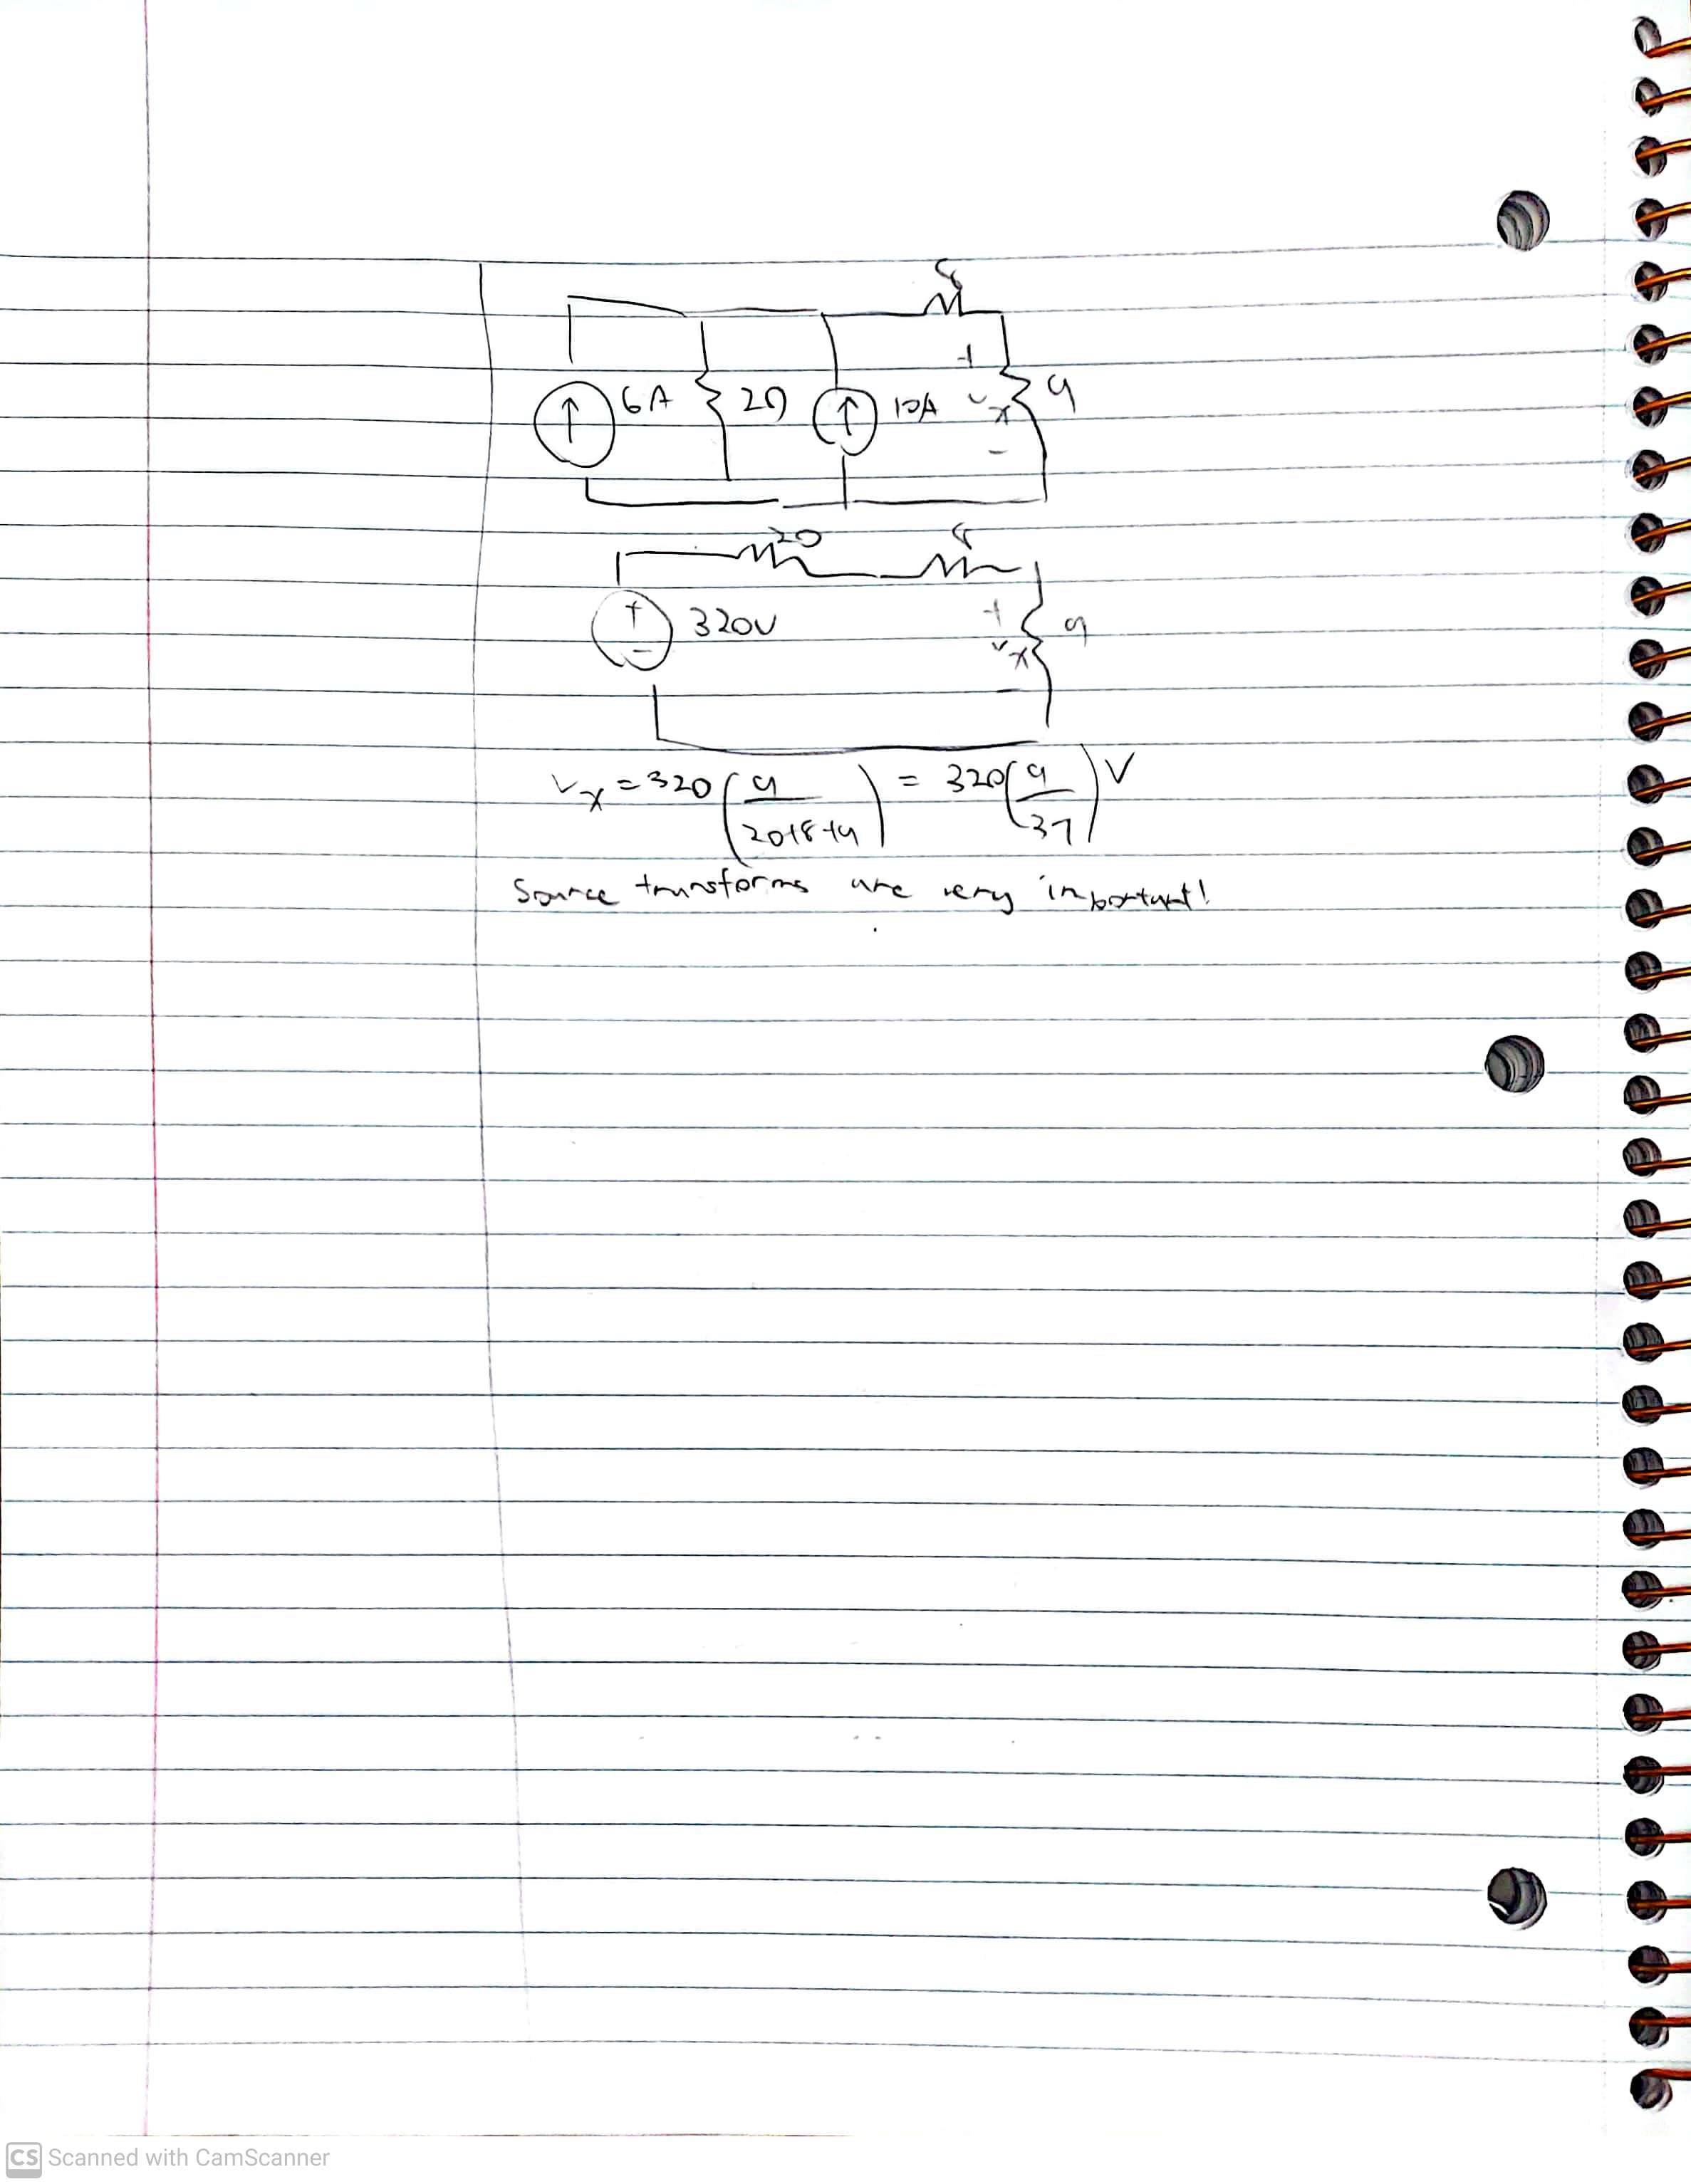 8
6A 20 10A + vx - 9
20 8
+ - 320V + vx - 9
vx = 320 (9 / 20+8+9) = 320 (9 / 37) V
Source transforms are very important!
CS Scanned with CamScanner